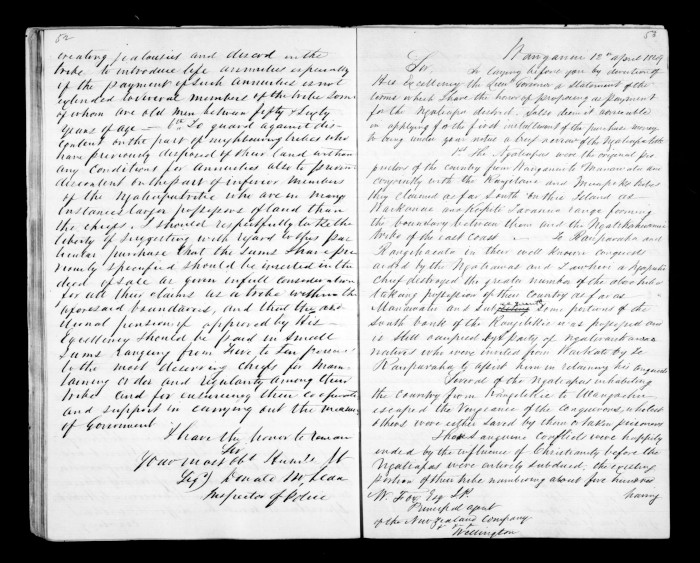 52
creating jealousies and discord in the
tribe to introduce life annuities especially
if the payment of such annuities is not
extended to several members of the tribe some
of whom are old men between fifty & sixty
years of age — 6th To guard against dis-
content on the part of neighbouring tribes who
have previously disposed of their land without
any conditions for annuities also to prevent
discontent on the part of inferior members
of the Ngatiapa tribe who are in many
instances larger possessors of land than
the chiefs. I should respectfully take the
liberty of suggesting with regard to this par
ticular purchase that the sums I have pre
viously specified should be inserted in the
deed of sale as given in full consideration
for all their claims as a tribe within the
aforesaid boundaries, and that the addi
tional pension if approved by His
Excellency should be paid in small
sums ranging from Five to Ten pounds
to the most deserving chiefs for main
taining order and regularity among their
tribe and for ensuring their cooperation
and support in carrying out the measures
of Government
I have the honor to remain
Sir
Your most Obt Humble St
Sigd Donald McLean
Inspector of Police
53
Wanganui 12th April 1849
Sir, In laying before you by direction of
His Excellency the Lieut Governor a statement of the
terms which I have the honor of proposing as payment
for the Ngatiapa district, I also deem it advisable
in applying for the first instalment of the purchase money
to bring under your notice a brief review of the Ngatiapa tribe
1st The Ngatiapas were the original pro
prietors of the country from Wanganui to Manawatu and
conjointly with the Rangitane and Muaupoko tribes
they claimed as far South on this Island as
Wairarapa the Tararua range forming
the boundary between them and the Ngatikahununu
tribe of the east coast — Te Rauparaha and
Rangihaeata in their well known conquests
aided by the Ngatiawas and a Ngapuhi
Chief destroyed the greater number of the above tribes
taking possession of their country as far as
Manawatu and subsequently some portions of the
South bank of the Rangitikei was possessed and
is still occupied by a party of Ngatiraukawa
natives who were invited from Waikato by Te
Rauparaha to assist him in retaining his conquests
Several of the Ngatiapas inhabiting
the country from Rangitikei to Wangaehu
escaped the vengeance of the conquerors, whilst
others were either saved by them or taken prisoners
These sanguine conflicts were happily
ended by the influence of Christianity before the
Ngatiapas were entirely subdued, the existing
portion of their tribe numbering about five hundred
having
W. Fox Esq JP
Principal agent
of the New Zealand Company
Wellington